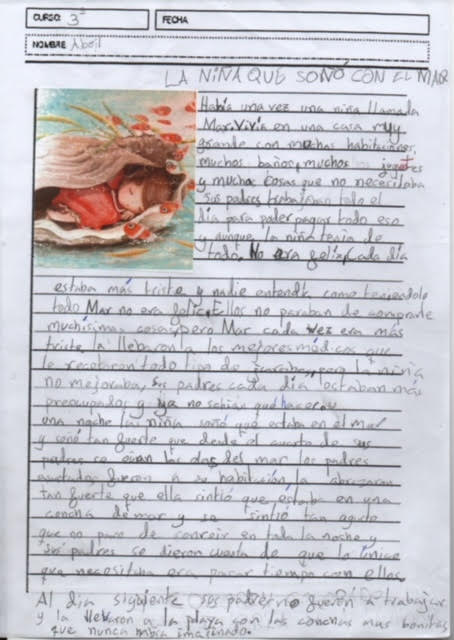 CURSO: 3º
FECHA
NOMBRE Abril
LA NIÑA QUE SOÑÓ CON EL MAR
Había una vez una niña llamada
Mar. Vivía en una casa muy
grande con muchas habitaciones,
muchos baños, muchos juguetes
y muchas cosas que no necesitaba
sus padres trabajaban todo el
día para poder pagar todo eso
y aunque la niña tenía de
todo, No era feliz, Cada día
estaba más triste y nadie entendía como teniendolo
todo Mar no era feliz. Ellos no paraban de comprarle
muchísimas cosas, pero Mar cada vez era más
triste la llebaron a los mejores médicos que
le recetaron todo tipo de jarabes, pero la niña
no mejoraba, sus padres cada día estaban más
preocupados y ya no sabían qué hacer
una noche la niña soñó que estaba en el mar
y soñó tan fuerte que desde el cuarto de sus
padres se oían las olas del mar los padres
asustados fueron a su habitación la abrazaron
tan fuerte que ella sintió que estaba en una
concha de mar y se sintió tan agusto
que no paro de sonreir en toda la noche y
sus padres se dieron cuenta de que lo único
que necesitaba era pasar tiempo con ellos
Al día siguiente sus padres no fueron a trabajar
y la llevaron a la playa con las conchas más bonitas
que nunca había imaginado.